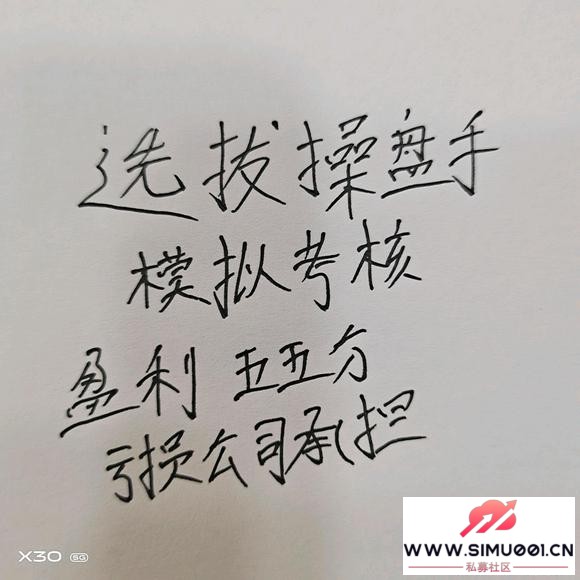 选拔操盘手
模拟考核
盈利 五五分
亏损公司承担
X30 5G
WWW.SIMU001.CN
私募社区